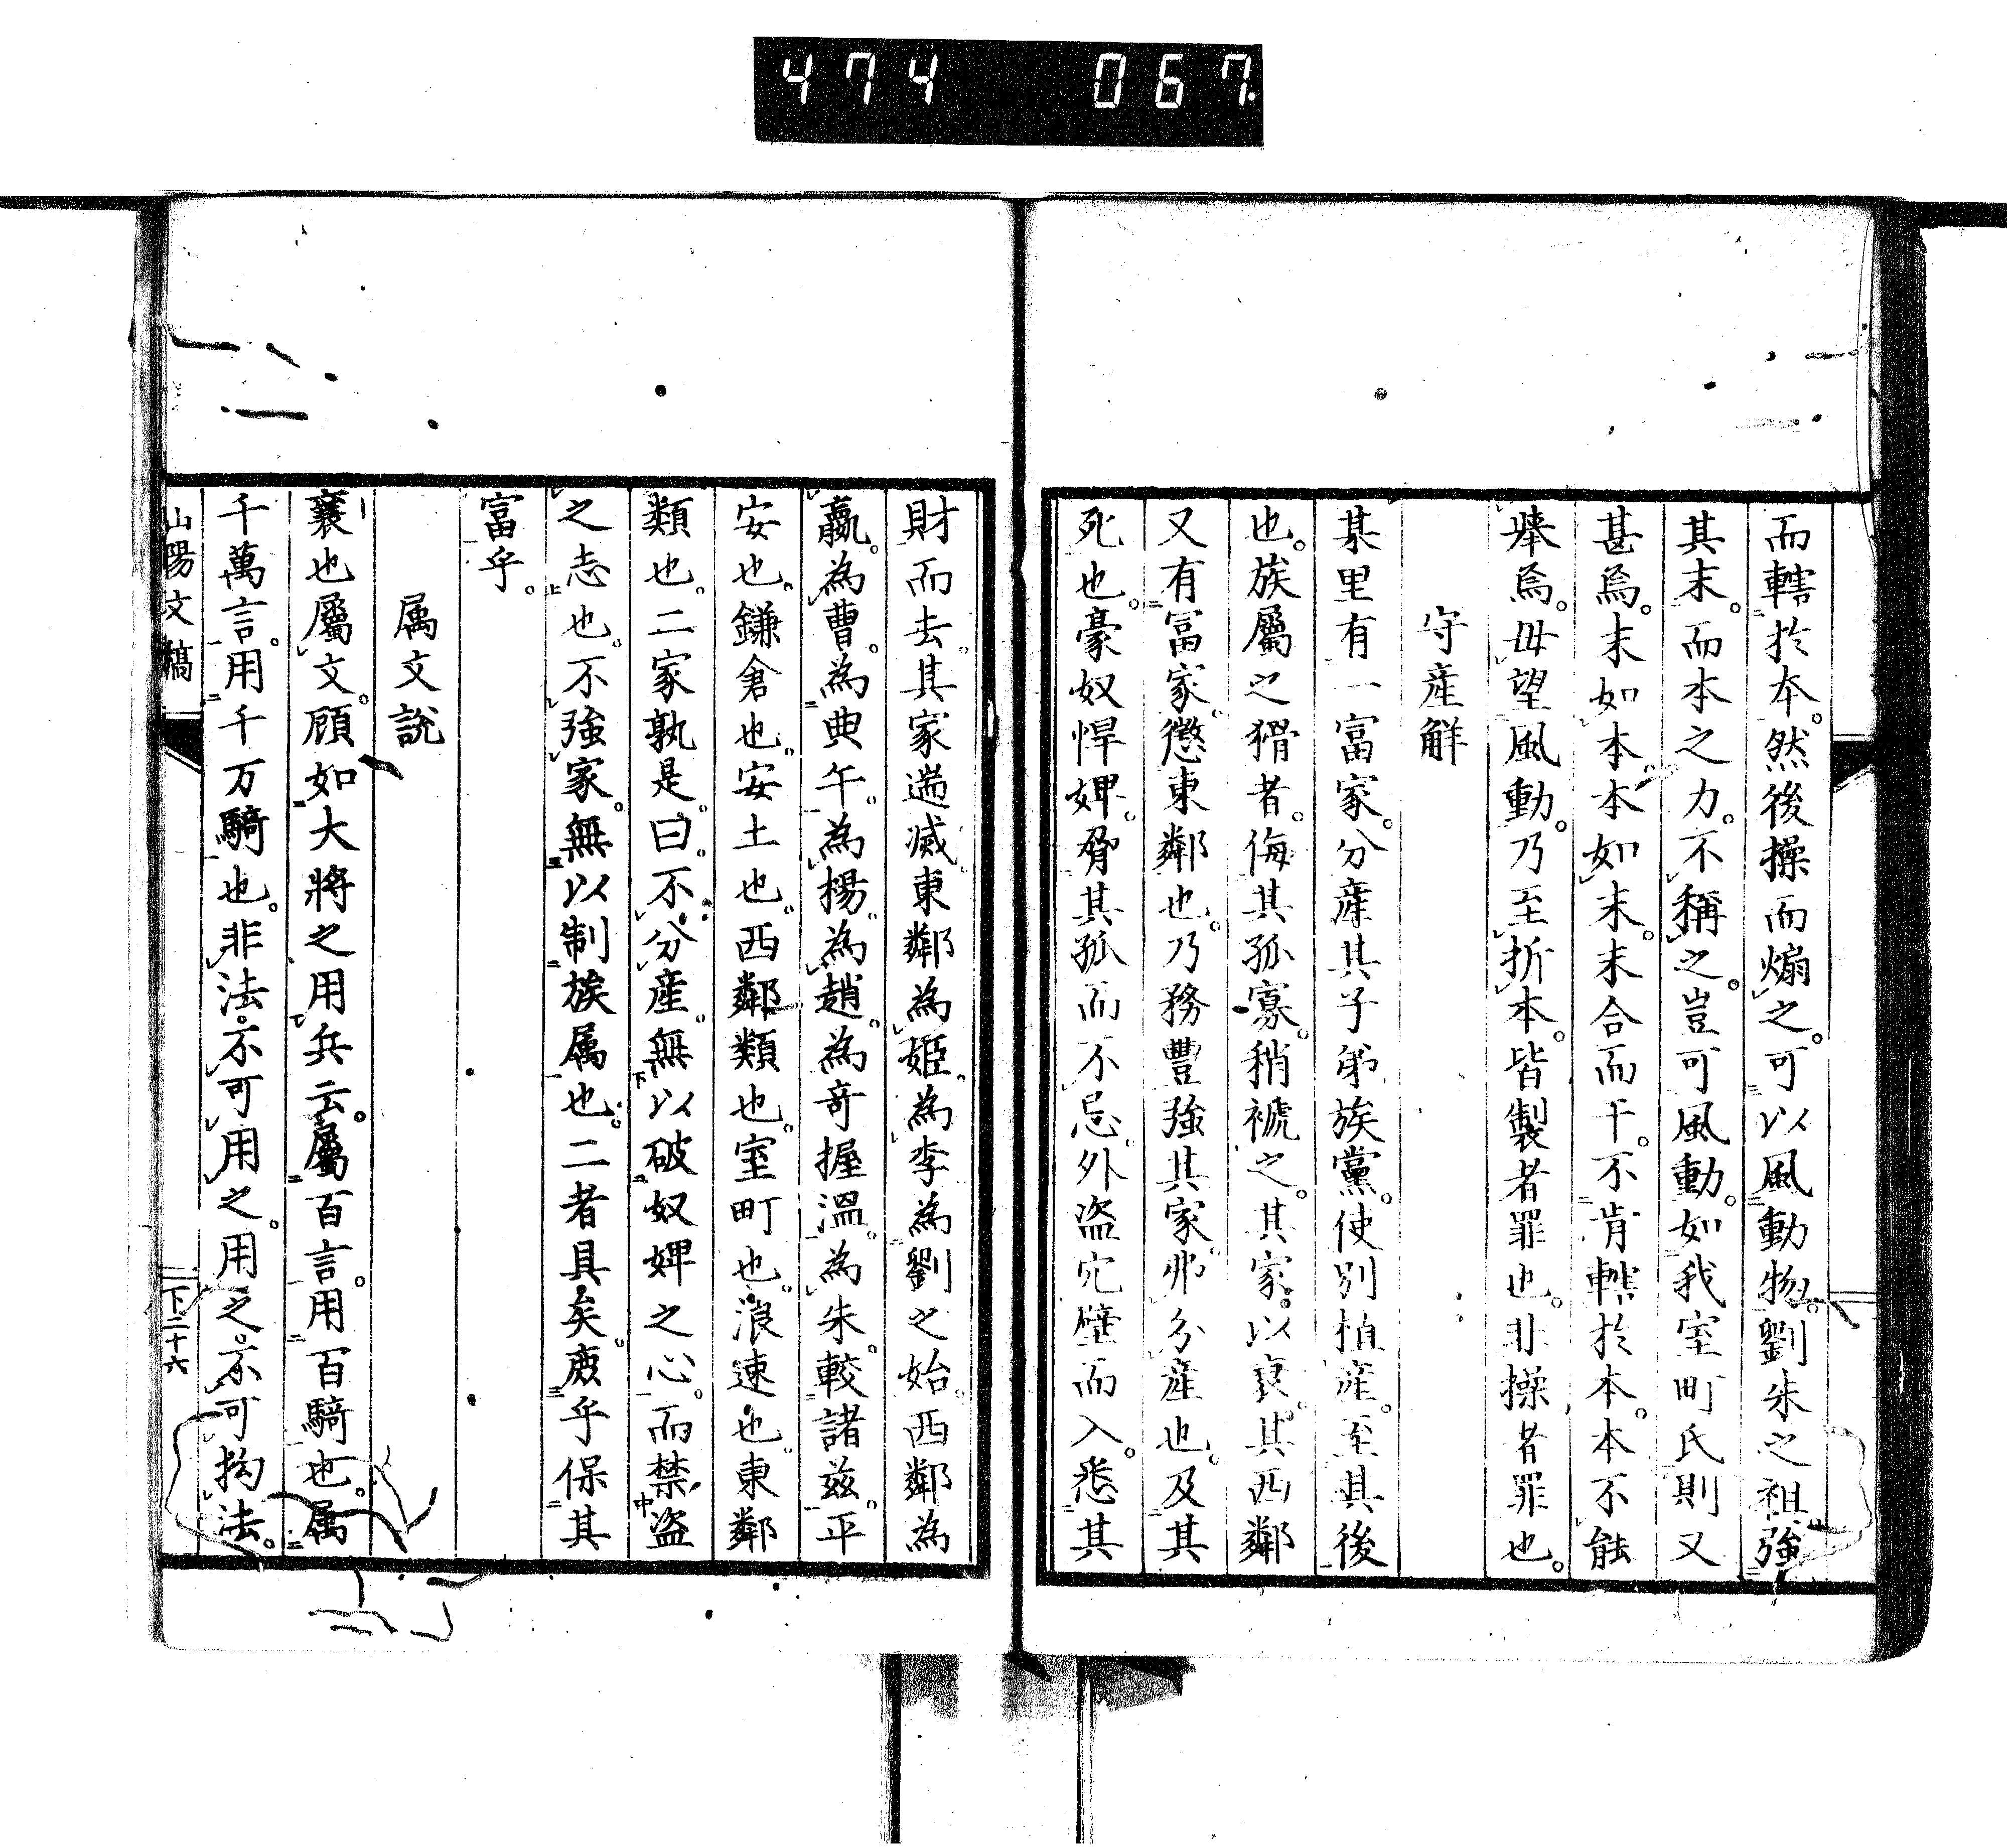 474 067
而轄於本。然後操而煽之。可以風動物。劉朱之祖。強
其末。而本之力。不稱之。豈可風動。如我室町氏則又
甚焉。末如本。本如末。末合而干。不肯轄於本。本不能
㪯焉。毋望風動。乃至折本。皆製者罪也。非操者罪也。
守產解
某里有一富家。分產其子弟族黨。使別柏產。至其後
也。族屬之猾者。侮其孤寡。稍褫之。其家。以衰。其西鄰
又有富家。懲東鄰也。乃務豐強其家。弗分產也。及其
死也。豪奴悍婢。脅其孤而不忌。外盜穴壁而入。悉其
財而去。其家遄滅。東鄰為姬。為李為劉之始。西鄰為
嬴。為曹。為典午。為楊。為趙。為奇握溫。為朱。較諸茲。平
安也。鎌倉也。安土也。西鄰類也。室町也。浪速也。東鄰
類也。二家孰是。曰。不分產。無以破奴婢之心。而禁盜
之志也。不強家。無以制族属也。二者具矣。庶乎保其
富乎。
属文說
襄也屬文。顧如大將之用兵云。屬百言。用百騎也。属
千萬言。用千万騎也。非法不可用之。用之不可拘法。
山陽文稿
下二十六